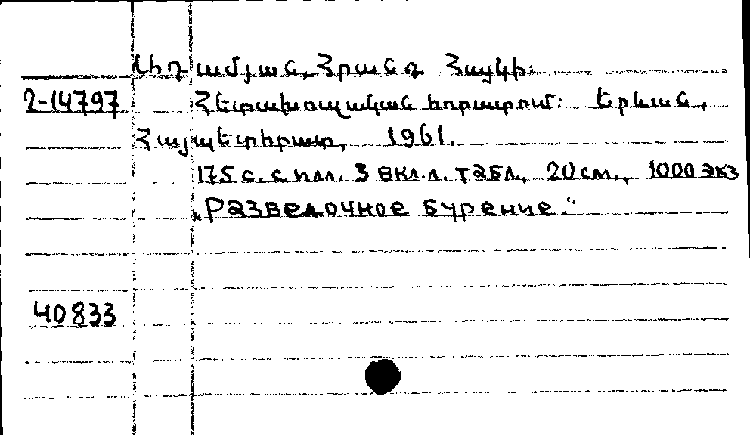 Նիդամյան, Հրանտ Հայկի։
2-14797 Հետախուզական հորատում։ Երևան,
Հայպետհրատ, 1961.
175 с. с илл. 3 вкл.л. табл., 20 см., 1000 экз
„Разведочное бурение."
40833